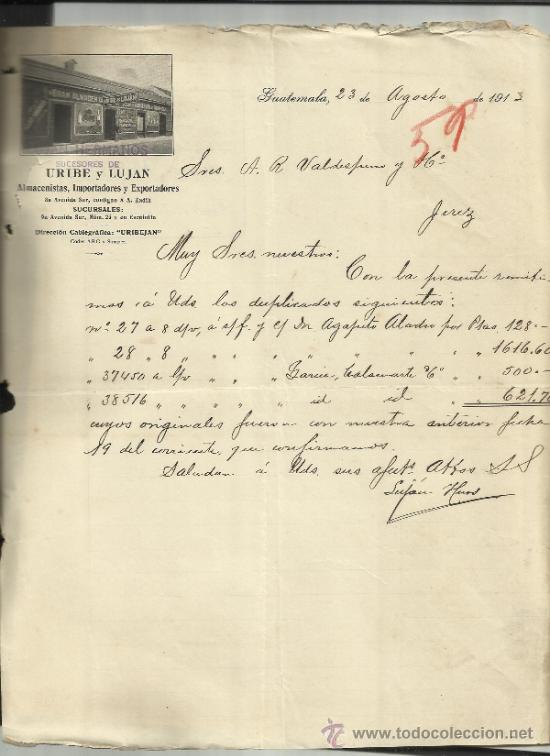 GRAN ALMACEN DE URIBE y LUJAN
HERMANOS
SUCESORES DE
URIBE y LUJAN
Almacenistas, Importadores y Exportadores
8a Avenida Sur, contiguo á A. Zadik
SUCURSALES:
9a Avenida Sur, Núm. 23 y en
Dirección Cablegráfica: "URIBEJAN"
Codes ABC y
Guatemala, 23 de Agosto de 1913
59
Sres. A. R. Valdespino y Hº
Jerez
Muy Sres. nuestros:
Con la presente remiti-
mos á Uds los duplicados siguientes:
nº 27 a 8 d/v, á s/f. y c/ Dn Agapito Aladro por Ptas. 128.-
" 28 " 8 " " " " " " " " 1616.60
" 37450 a l/v " " Garcia, " " 500.-
" 38516 " " " " id id " 621.70
cuyos originales fueron con nuestra anterior fecha
19 del corriente, que confirmamos.
Saludan á Uds. sus afmos. Attos S S
Luján Hnos
www.todocoleccion.net